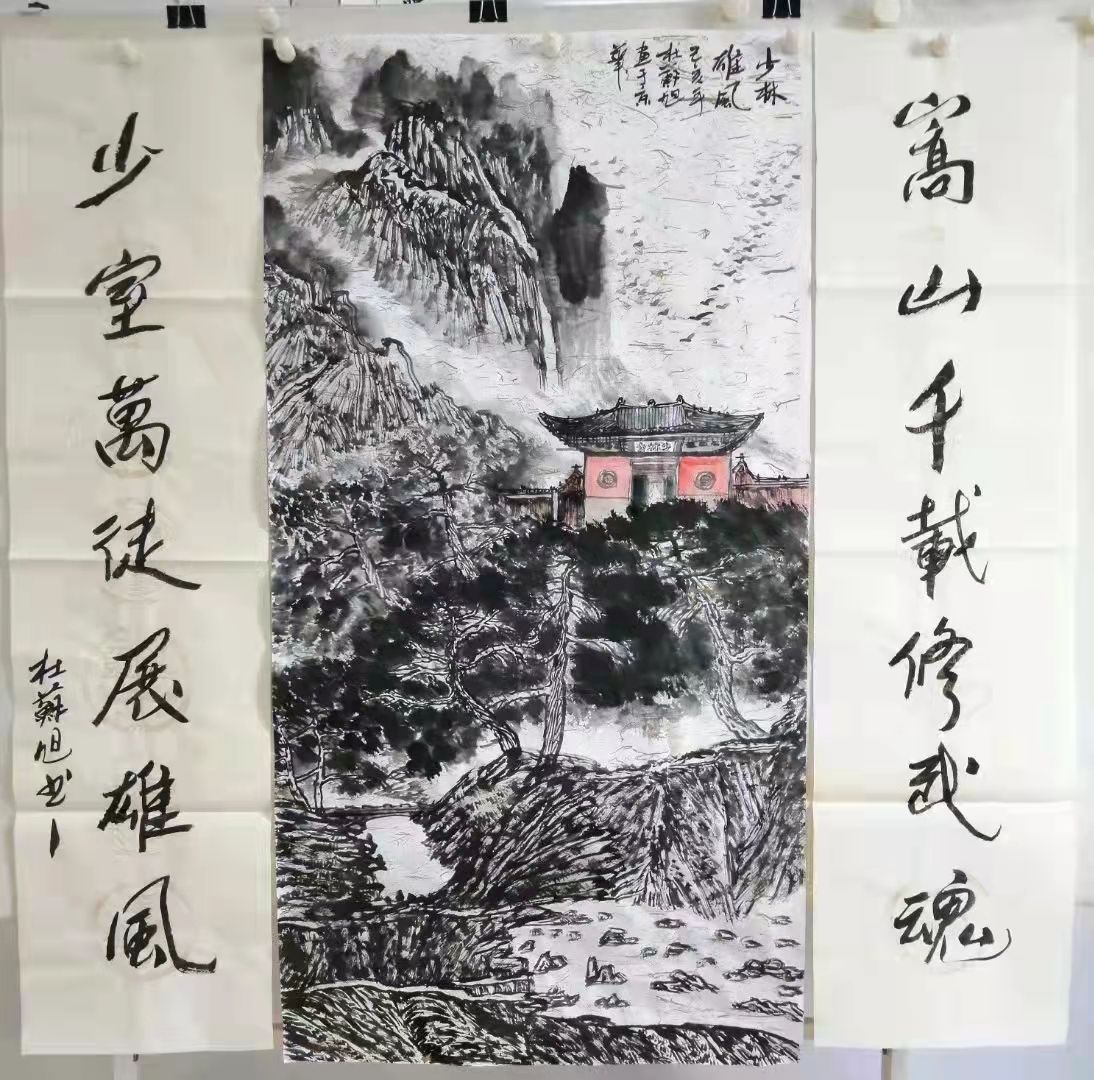 嵩山千載修武魂
少林
雄風
己亥年
杜蘇旭
畫于京
華
少林寺
少室萬徒展雄風
杜蘇旭书